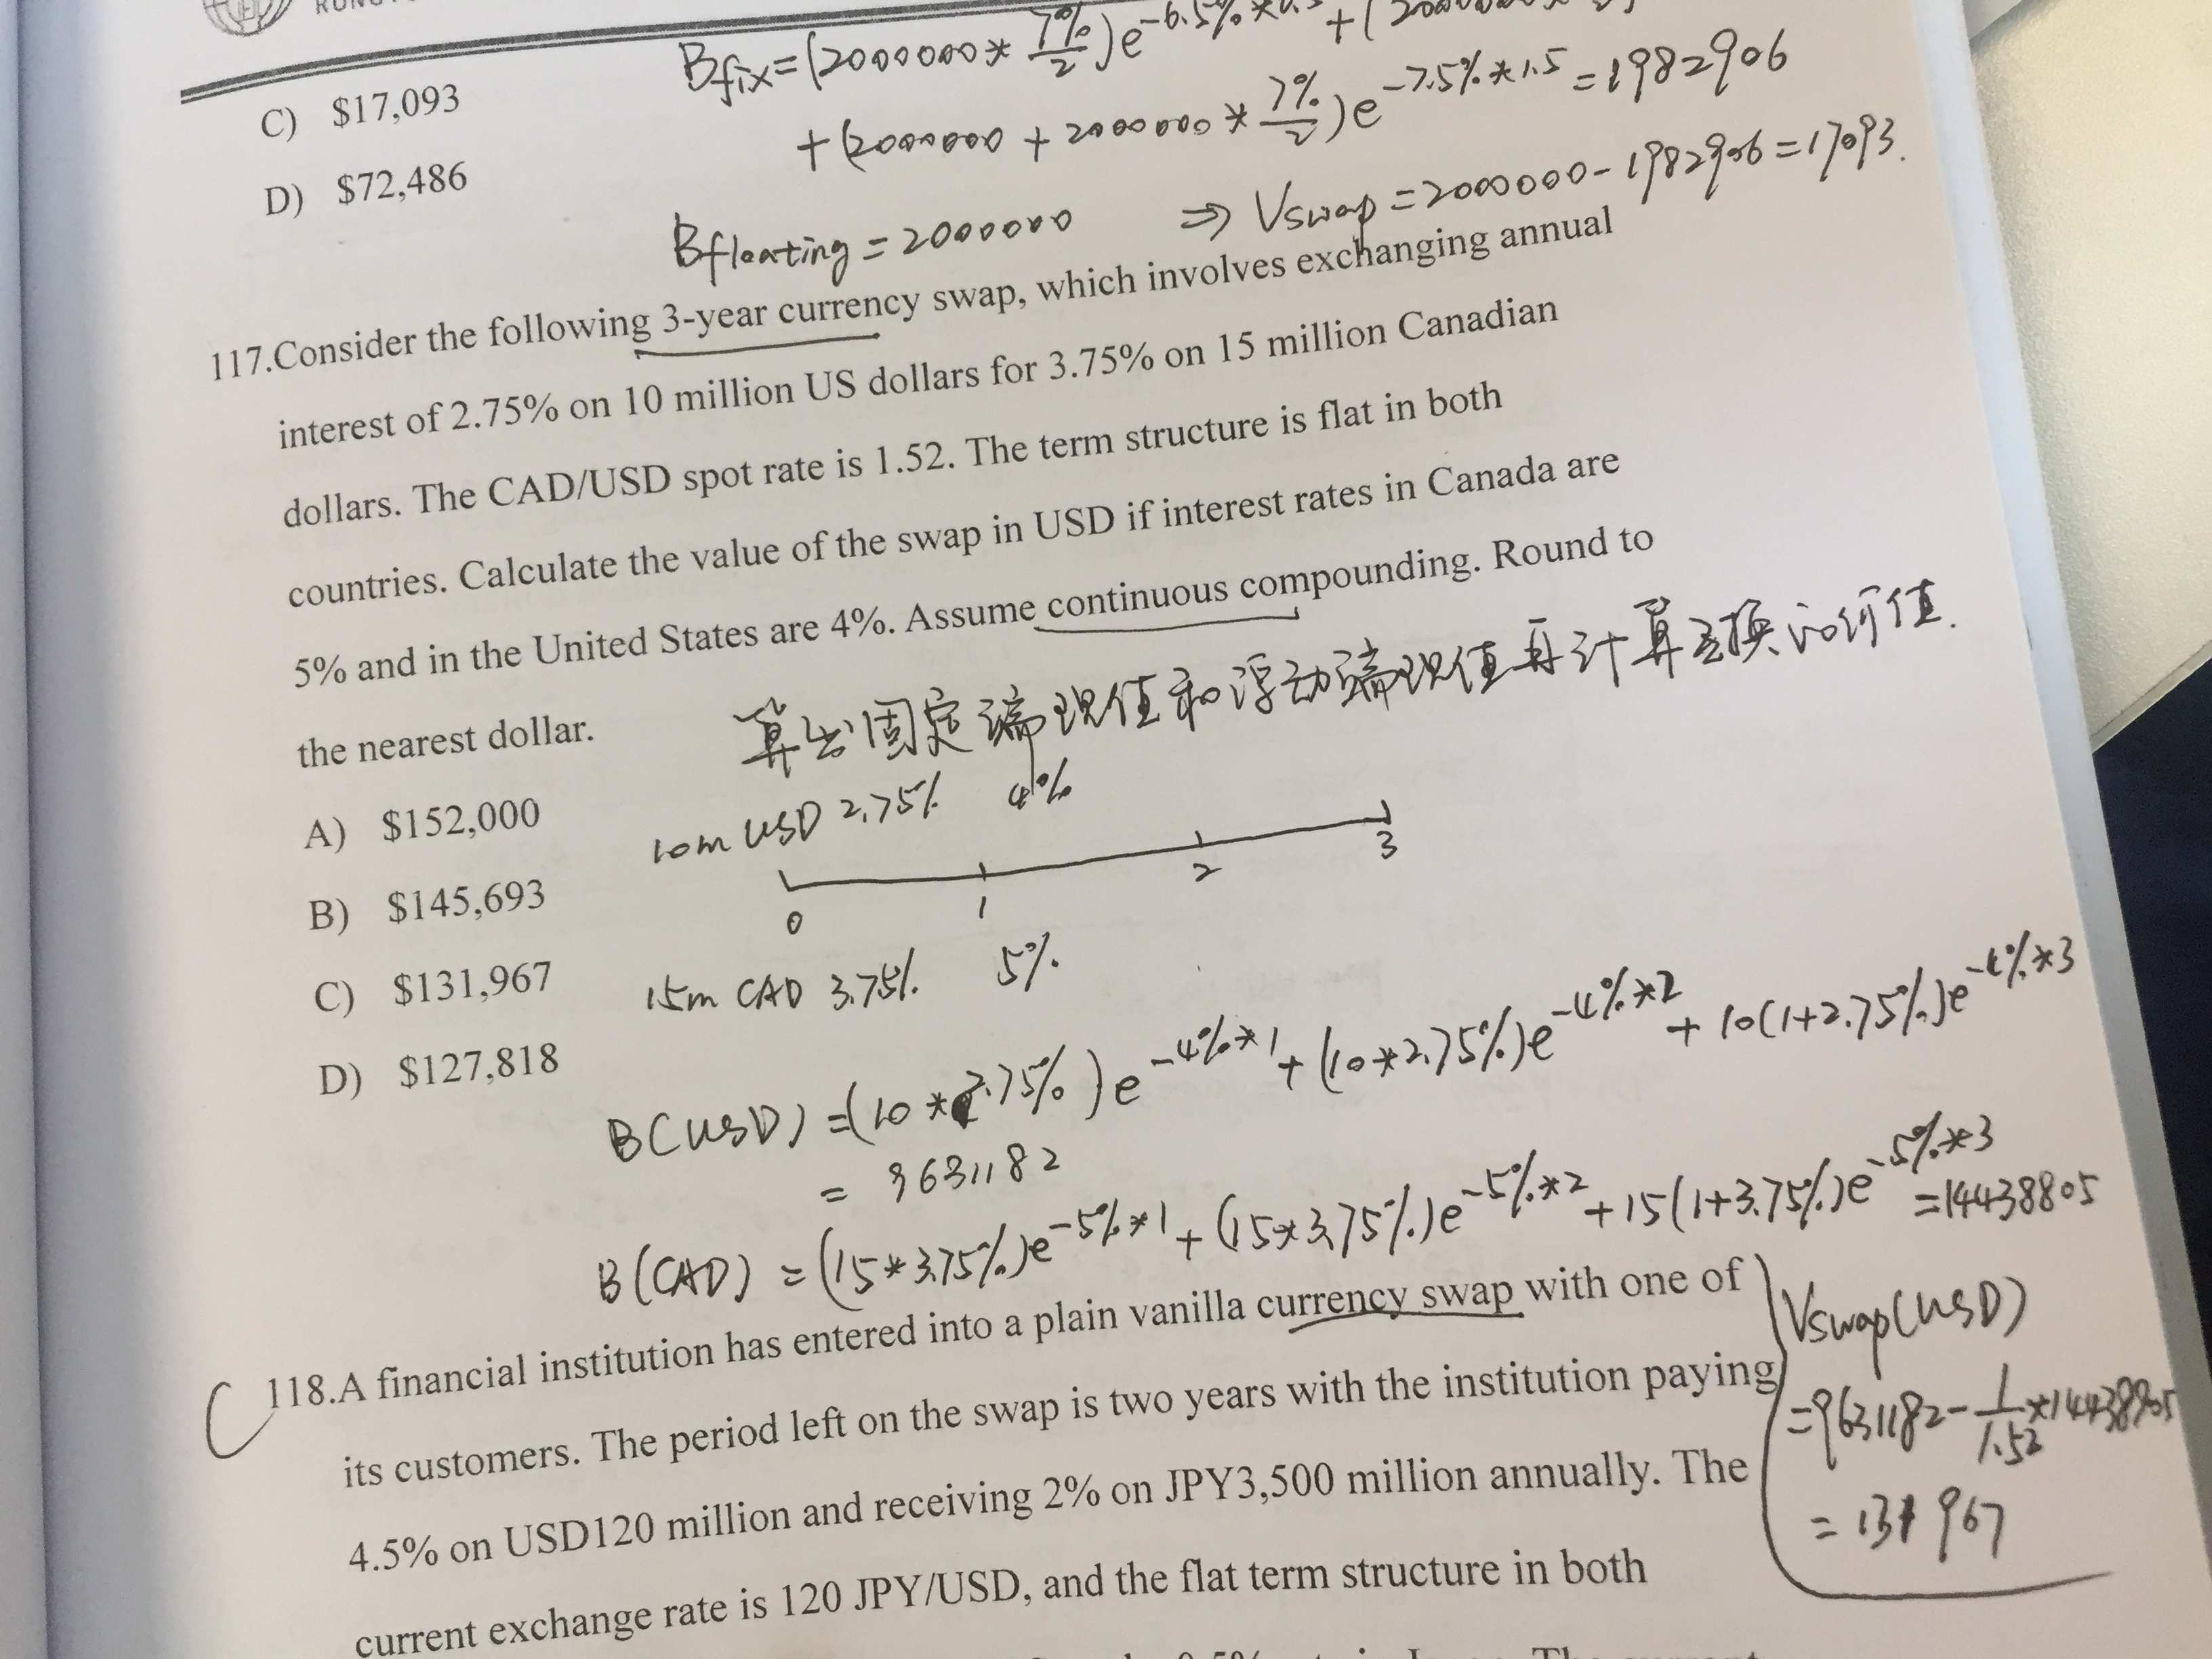 Bfix=(2000000*7%/2)e^-6.5%*0.5+(2000000
C) $17,093
+(2000000+2000000*7%/2)e^-7.5%*1.5=1982906
D) $72,486
Bfloating=2000000 ⇒ Vswap=2000000-1982906=17093.
117.Consider the following 3-year currency swap, which involves exchanging annual
interest of 2.75% on 10 million US dollars for 3.75% on 15 million Canadian
dollars. The CAD/USD spot rate is 1.52. The term structure is flat in both
countries. Calculate the value of the swap in USD if interest rates in Canada are
5% and in the United States are 4%. Assume continuous compounding. Round to
the nearest dollar.
算出固定端现值和浮动端现值再计算互换的价值.
A) $152,000
10m USD 2.75% 4%
B) $145,693
0 1 2 3
C) $131,967
15m CAD 3.75% 5%
D) $127,818
B(USD)=(10*2.75%)e^-4%*1+(10*2.75%)e^-4%*2+10(1+2.75%)e^-4%*3
=9631182
B(CAD)=(15*3.75%)e^-5%*1+(15*3.75%)e^-5%*2+15(1+3.75%)e^-5%*3=14438805
Vswap(USD)
=9631182-1/1.52*14438805
=131967
C
118.A financial institution has entered into a plain vanilla currency swap with one of
its customers. The period left on the swap is two years with the institution paying
4.5% on USD120 million and receiving 2% on JPY3,500 million annually. The
current exchange rate is 120 JPY/USD, and the flat term structure in both